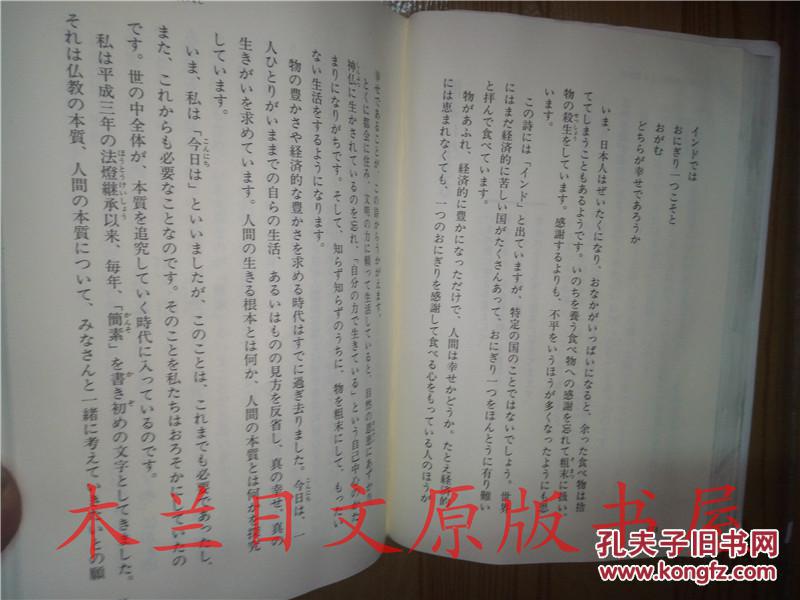 インドでは
おにぎり一つこそと
おがむ
どちらが幸せであろうか
いま、日本人はぜいたくになり、おなかがいっぱいになると、余った食べ物は捨
ててしまうこともあるようです。いのちを養う食べ物への感謝を忘れて粗末に扱い、
物の殺生をしています。感謝するよりも、不平をいうほうが多くなったようにも思
います。
この詩には「インド」と出ていますが、特定の国のことではないでしょう。世界
にはまだ経済的に苦しい国がたくさんあって、おにぎり一つをほんとうに有り難い
と拝んで食べています。
物があふれ、経済的に豊かになっただけで、人間は幸せかどうか。たとえ経済的
には恵まれなくても、一つのおにぎりを感謝して食べる心をもっている人のほうが
幸せであることが、この詩からうかがえます。
とくに都会に住み、文明の力に頼って生活していると、自然の恩恵にあずかり、
神仏に生かされているのを忘れ、「自分の力で生きている」という自己中心のかた
まりになりがちです。そして、知らず知らずのうちに、物を粗末にして、もったい
ない生活をするようになります。
物の豊かさや経済的な豊かさを求める時代はすでに過ぎ去りました。今日は、一
人ひとりがいままでの自らの生活、あるいはものの見方を反省し、真の幸せ、真の
生きがいを求めています。人間の生きる根本とは何か、人間の本質とは何かを探究
しています。
いま、私は「今日は」といいましたが、このことは、これまでも必要であったし、
また、これからも必要なことなのです。そのことを私たちはおろそかにしていたの
です。世の中全体が、本質を追究していく時代に入っているのです。
私は平成三年の法燈継承以来、毎年、「簡素」を書き初めの文字としてきました。
それは仏教の本質、人間の本質について、みなさんと一緒に考えていきたいとの願
木兰日文原版书屋
孔夫子旧书网
www.kongfz.com